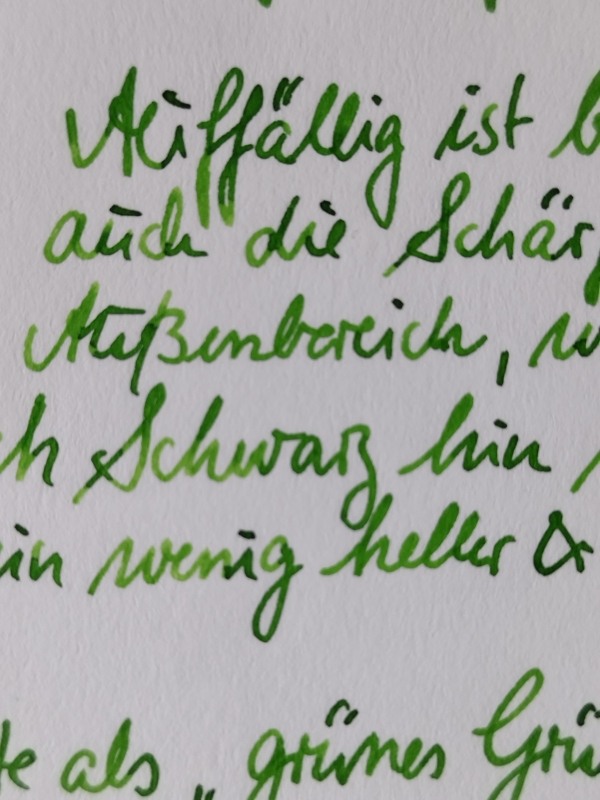 Auffällig ist
auch die
Außenbereich,
Schwarz hin
wenig heller &
als „grünes